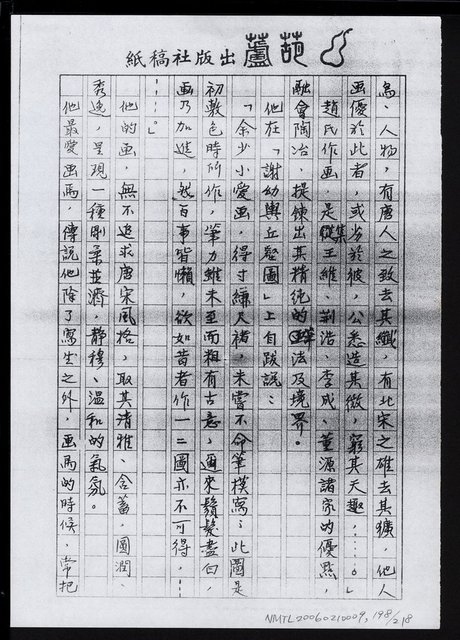 紙稿社版出蘆葩
鳥、人物,有唐人之致去其纖,有北宋之雄去其獷,他人
畫優於此者,或劣於彼,公悉造其微,窮其天趣,……。」
趙氏作画,是從集王維、荊浩、李成、董源諸家的優點,
融會陶冶,提鍊出其精純的筆法及境界。
他在「謝幼輿丘壑圖」上自跋說:
「余少小愛画,得寸縑尺褚,未嘗不命筆模寫;此圖是
初敷色時所作,筆力雖未至而粗有古意,邇來鬚髮盡白,
画乃加進,然百事皆懶,欲如昔者作一二圖亦不可得,……
……。」
他的画,無不追求唐宋風格,取其清雅、含蓄,圓潤、
秀逸,呈現一種剛柔並濟,靜穆、溫和的氣氛。
他最愛画馬,傳說他除了寫生之外,画馬的時候,常把
NMTL20060210009, 198/218